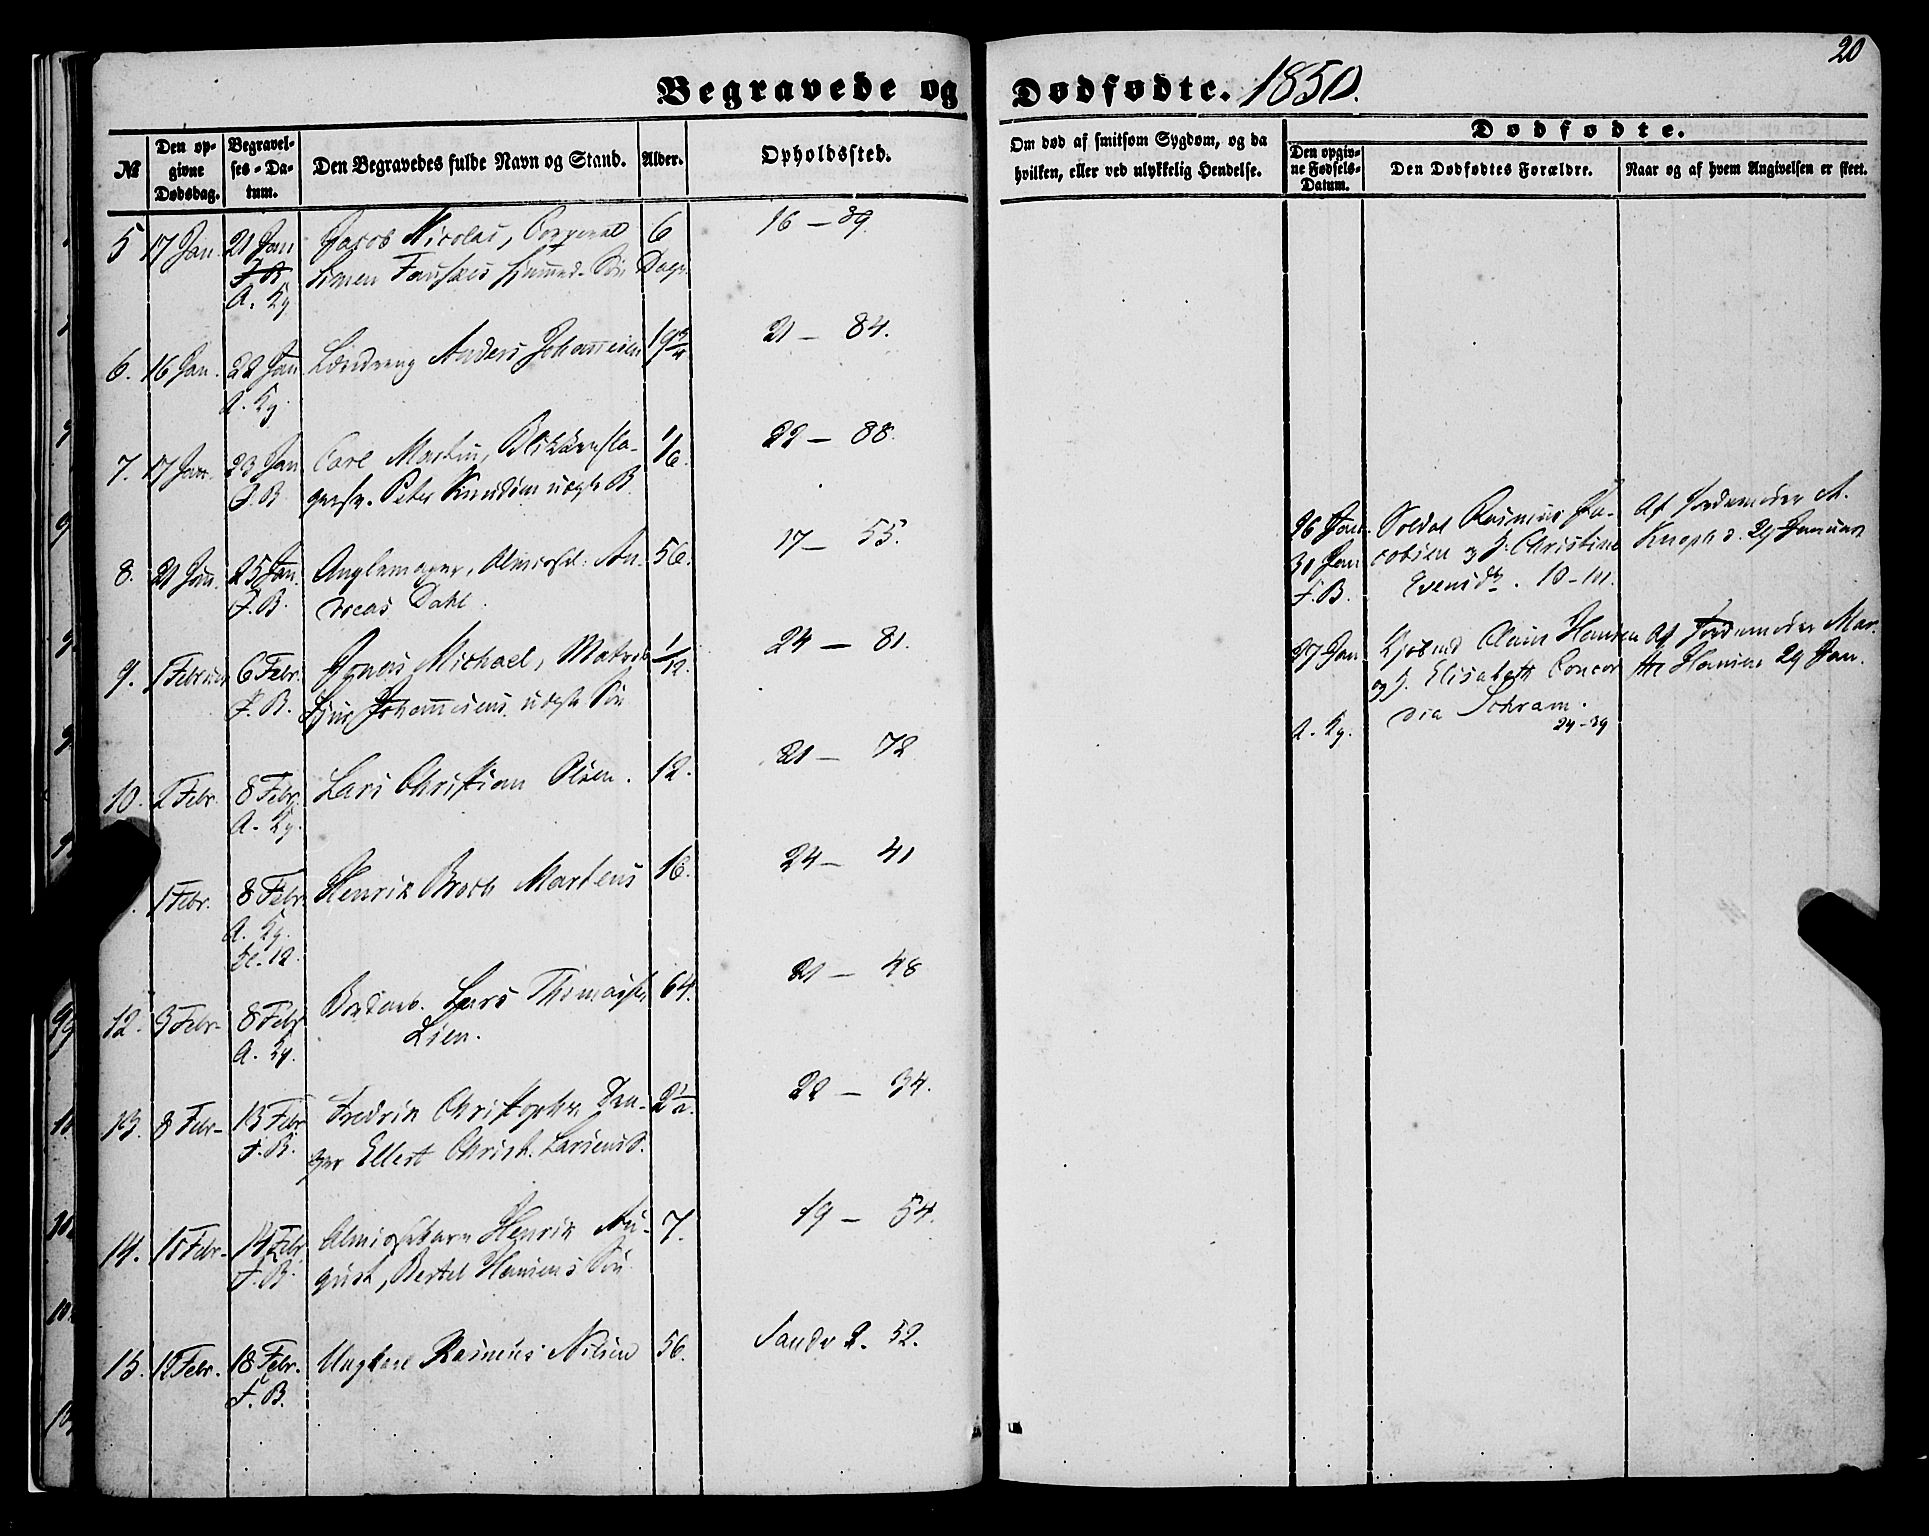 20
Begravede og Dødfødte. 1850.
№
Den op-
givne
Dødsdag.
Begravel-
ses-Da-
tum.
Den Begravedes fulde Navn og Stand.
Alder.
Opholdssted.
Om død af smitsom Sygdom, og da
hvilken, eller ved ulykkelig Hendelse.
Dødfødte.
Den opgiv-
ne Fødsels-
Datum.
Den Dødfødtes Forældre.
Naar og af hvem Angivelsen er skeet.
5 17 Jan. 21 Jan Jacob Nicolai, Corporal 6 16 – 39
Simen Søn Dage
A. Kg
6. 16 Jan. 22 Jan Anders Johannesen 19 3/4 21 – 84.
A. Kg.
7. 17 Jan. 23 Jan Carl Martin, Blikkensla- 1/16. 22 – 88.
F.B. Peter Knudsen uægte B.
8. 21 Jan. 25 Jan. An- 56. 17 – 55.
F.B. dreas Dahl.
9. 1 Februar 6 Febr. Michael, Matros 1/12. 24 – 81.
F.B. Johannesens uægte Søn
10. 2 Febr. 8 Febr. Lars Christian Olsen. 12. 21 – 72
A. Kg.
1 Febr. 8 Febr. Henrik Broch Martens 16. 24 – 41
A. Kg.
Kl. 12.
12. 3 Febr. 8 Febr Lars 64. 21 – 48
A. Kg. Lien.
13. 8 Febr. 13 Febr Fredrik Christopher 2 1/2. 22 – 34.
F.B. Ellert Christ. Larsens S.
14. Febr. 14 Febr Henrik Au- 7. 19 – 54.
F.B. gust, Bertel Hansens Søn
15. 12 Febr. 18 Febr. Ungkarl Rasmus Nilsen 56. Sandv 2. 52.
F.B.
26 Jan. Soldat Rasmus Ja- Af Jordemoder M.
31 Jan cobsen og H. Christine 29 Januar
F.B. 10–111.
27 Jan Claus Hansen Af Jordemoder Mar-
og H. Elisabeth Concor- the Hansen 29 Jan.
dia Schram.
24–39
A. Kg.